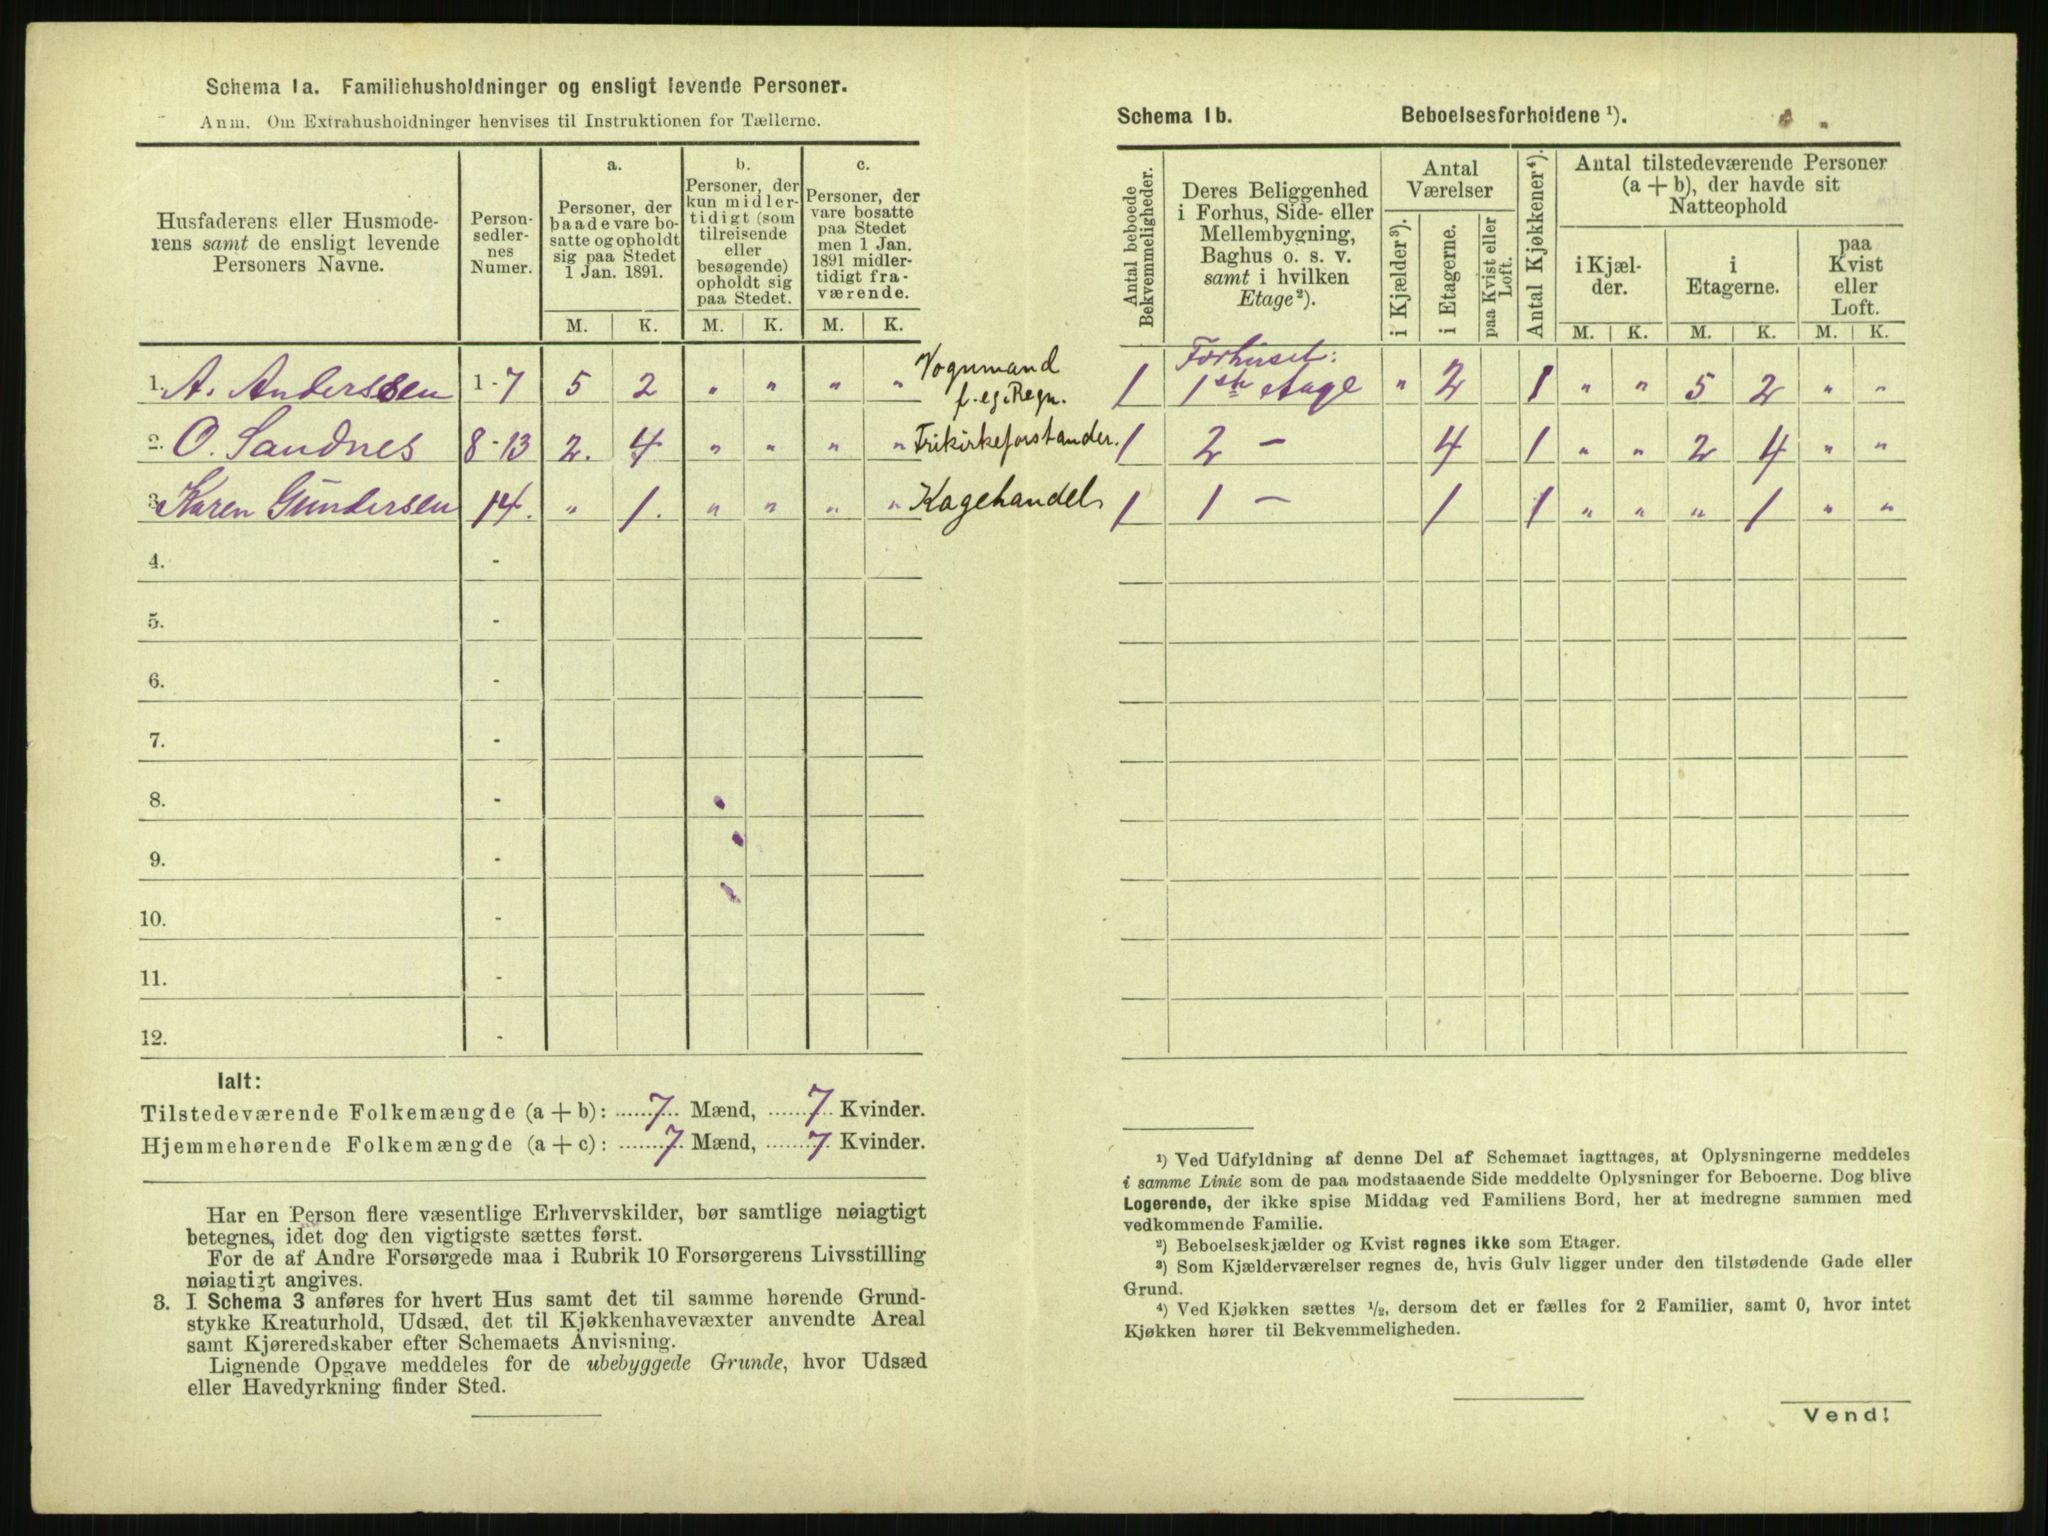 Schema 1a. Familiehusholdninger og ensligt levende Personer.
Anm. Om Extrahusholdninger henvises til Instruktionen for Tællerne.
Husfaderens eller Husmoderens samt de ensligt levende Personers Navne.
Personsedlernes Numer.
a.
Personer, der baade vare bosatte og opholdt sig paa Stedet 1 Jan. 1891.
b.
Personer, der kun midlertidigt (som tilreisende eller besøgende) opholdt sig paa Stedet.
c.
Personer, der vare bosatte paa Stedet men 1 Jan. 1891 midlertidigt fraværende.
M. K. M. K. M. K.
1. A. Anderssen 1-7 5 2 " " " " Vognmand f. eg. Regn.
2. O. Sandnes 8-13 2. 4 " " " " Frikirkeforstander.
3. Karen Gundersen 14. " 1. " " " " Kagehandel
4. -
5. -
6. -
7. -
8. -
9. -
10. -
11. -
12. -
Ialt:
Tilstedeværende Folkemængde (a+b): 7 Mænd, 7 Kvinder.
Hjemmehørende Folkemængde (a+c): 7 Mænd, 7 Kvinder.
Har en Person flere væsentlige Erhvervskilder, bør samtlige nøiagtigt
betegnes, idet dog den vigtigste sættes først.
For de af Andre Forsørgede maa i Rubrik 10 Forsørgerens Livsstilling
nøiagtigt angives.
3. I Schema 3 anføres for hvert Hus samt det til samme hørende Grund-
stykke Kreaturhold, Udsæd, det til Kjøkkenhavevæxter anvendte Areal
samt Kjøreredskaber efter Schemaets Anvisning.
Lignende Opgave meddeles for de ubebyggede Grunde, hvor Udsæd
eller Havedyrkning finder Sted.
Schema 1b. Beboelsesforholdene ¹).
Antal beboede Bekvemmeligheder.
Deres Beliggenhed i Forhus, Side- eller Mellembygning, Baghus o. s. v. samt i hvilken Etage²).
Antal Værelser
i Kjælder³).
i Etagerne.
paa Kvist eller Loft.
Antal Kjøkkener⁴).
Antal tilstedeværende Personer (a+b), der havde sit Natteophold
i Kjælder.
i Etagerne.
paa Kvist eller Loft.
M. K. M. K. M. K.
Forhuset:
1 1ste Etage " 2 1 " " 5 2 " "
1 2 - 4 1 " " 2 4 " "
1 1 - 1 1 " " " 1 " "
¹) Ved Udfyldning af denne Del af Schemaet iagttages, at Oplysningerne meddeles
i samme Linie som de paa modstaaende Side meddelte Oplysninger for Beboerne. Dog blive
Logerende, der ikke spise Middag ved Familiens Bord, her at medregne sammen med
vedkommende Familie.
²) Beboelseskjælder og Kvist regnes ikke som Etager.
³) Som Kjælderværelser regnes de, hvis Gulv ligger under den tilstødende Gade eller
Grund.
⁴) Ved Kjøkken sættes ½, dersom det er fælles for 2 Familier, samt 0, hvor intet
Kjøkken hører til Bekvemmeligheden.
Vend!